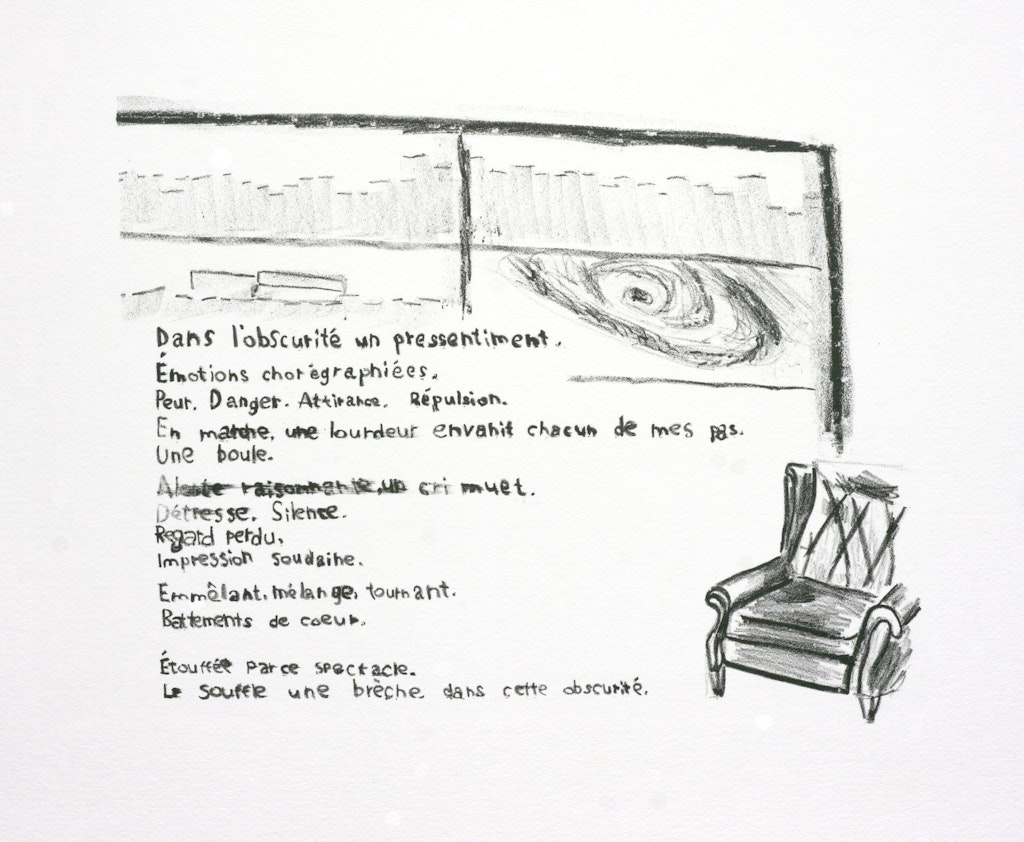 Dans l'obscurité un pressentiment.
Émotions chorégraphiées.
Peur. Danger. Attirance. Répulsion.
En marche, une lourdeur envahit chacun de mes pas.
Une boule.
Alerte raisonnante, un cri muet.
Détresse. Silence.
Regard perdu.
Impression soudaine.
Emmêlant, mélange, tournant.
Battements de coeur.
Étouffée par ce spectacle.
Le souffle une brèche dans cette obscurité.